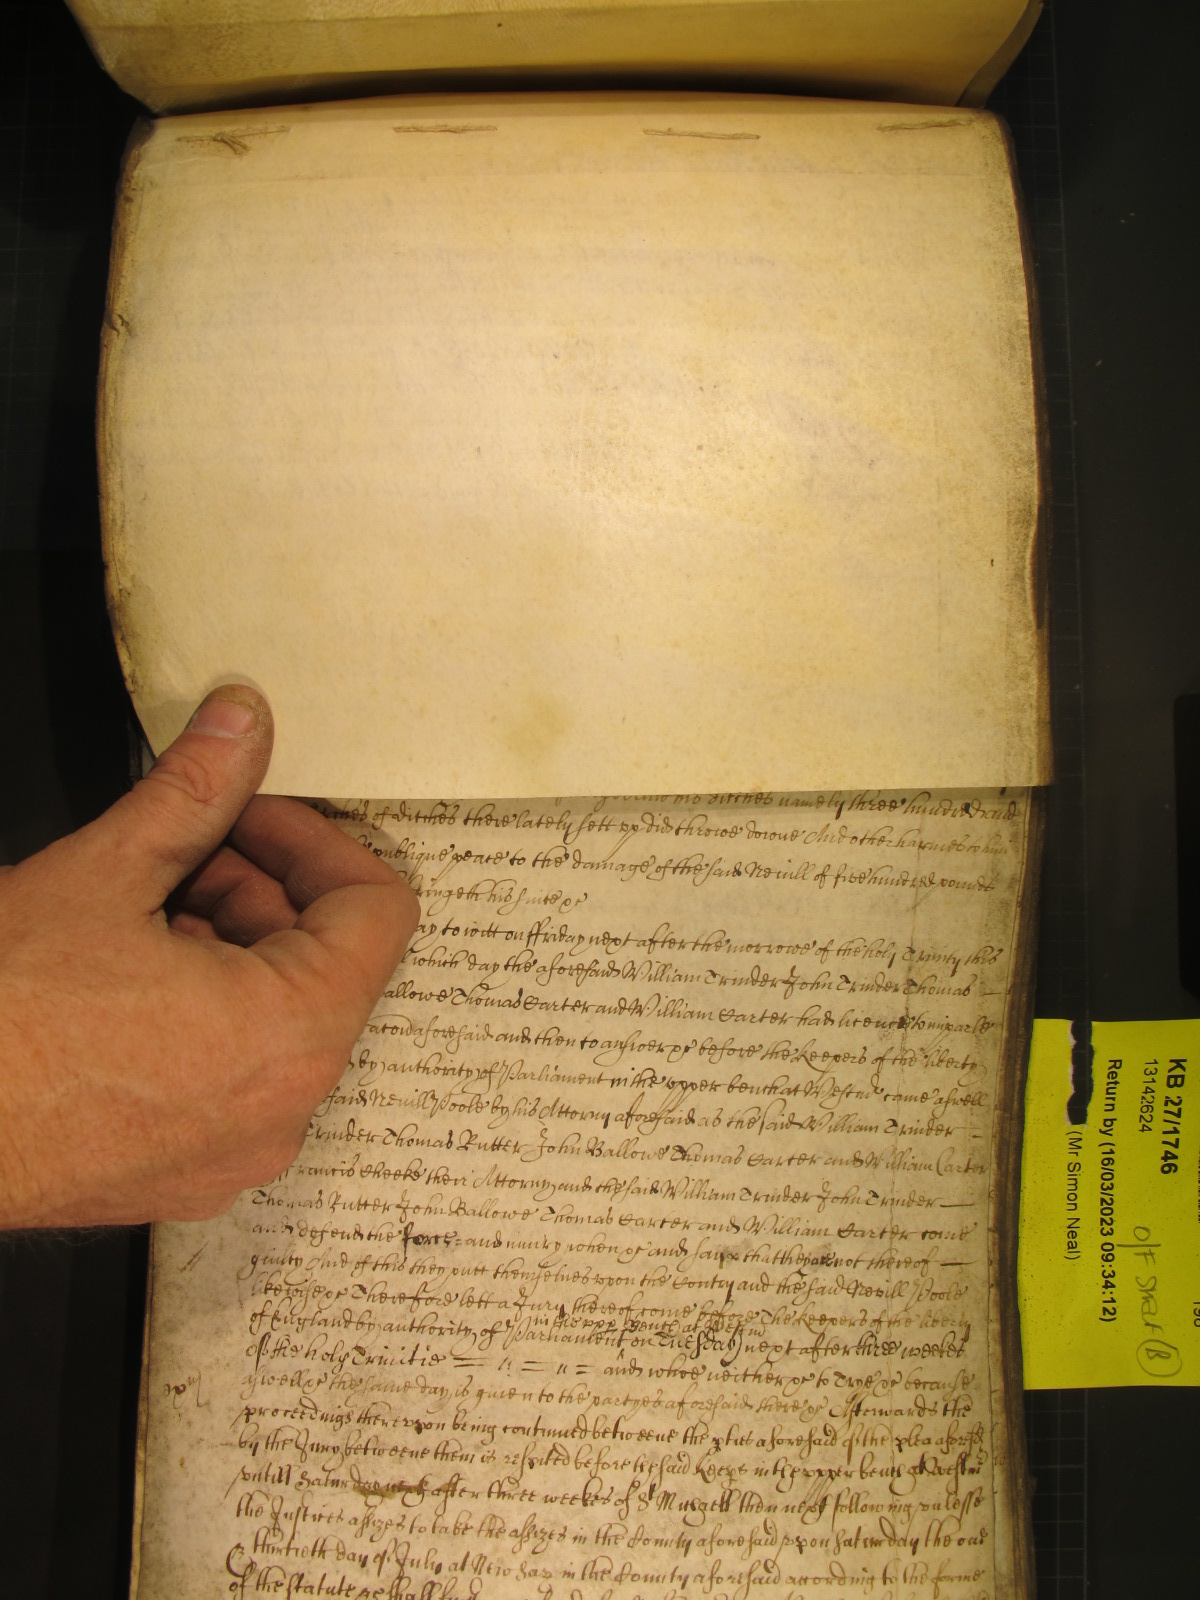 ditches namely three hundred and
of ditches there lately sett upp did throwe downe And other harmes to him
publique peace to the damage of the said Nevill of five hundred pounds
bringeth his suite &c
day to witt on ffriday next after the morrowe of the holy Trinity this
which day the aforesaid William Trinder John Trinder Thomas
Ballowe Thomas Carter and William Carter had licence to imparle
aforesaid and then to answer &c before the keepers of the liberty
by authority of Parliament in the upper bench at Westmr came aswell
said Nevill Poole by his Attorny aforesaid as the said William Trinder =
Trinder Thomas Rutter John Ballowe Thomas Carter and William Carter
Francis Cheeke their Attorny and the said William Trinder John Trinder
Thomas Rutter John Ballowe Thomas Carter and William Carter come
and defend the force and iniury when &c and say that they are not thereof
guilty And of this they putt themselves upon the Contry and the said Nevill Poole
likewise &c Therefore lett a Jury thereof come before The keepers of the liberty
in the upp bench at Westmr
of England by authority of Parliament on Tuesday next after three weekes
of the holy Trinitie = " = " = and whoe neither &c to Trye &c because
aswell &c the same day is given to the partyes aforesaid there &c Afterwards the
proceedings thereupon being continued betweene the pties aforesaid of the plea aforesd
by the Jury betweene them is respited before the said keeps in the upper bench at Westmr
untill Saturday next after three weekes of St Michaell then next following unlesse
the Justices assizes to take the assizes in the County aforesaid upon Saturday the
thirtieth day of July at New Sar in the County aforesaid according to the forme
of the statute &c shall
KB 27/1746
13142624
Return by (16/03/2023 09:34:12)
(Mr Simon Neal)
O/F Shelf (B)